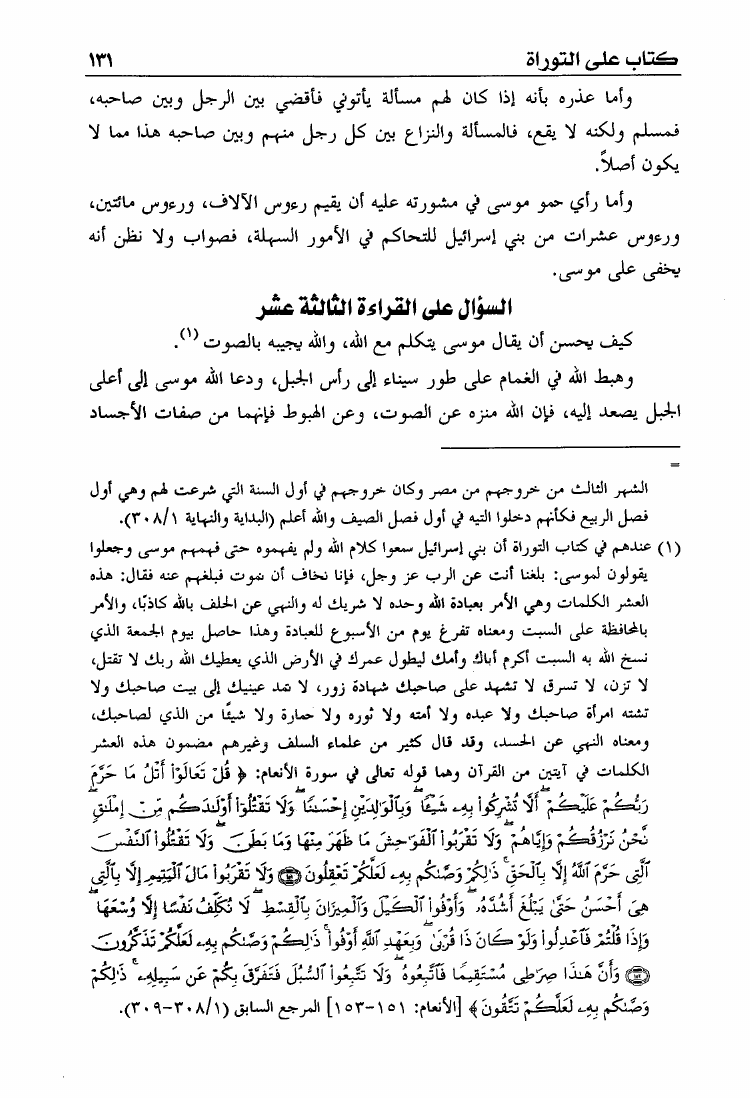 كتاب على التوراة ١٣١
وأما عذره بأنه إذا كان لهم مسألة يأتوني فأقضي بين الرجل وبين صاحبه،
فمسلم ولكنه لا يقع، فالمسألة والنزاع بين كل رجل منهم وبين صاحبه هذا مما لا
يكون أصلاً.
وأما رأي حمو موسى في مشورته عليه أن يقيم رءوس الآلاف، ورءوس مائتين،
ورءوس عشرات من بني إسرائيل للتحاكم في الأمور السهلة، فصواب ولا نظن أنه
يخفى على موسى.
السؤال على القراءة الثالثة عشر
كيف يحسن أن يقال موسى يتكلم مع الله، والله يجيبه بالصوت (١).
وهبط الله في الغمام على طور سيناء إلى رأس الجبل، ودعا الله موسى إلى أعلى
الجبل يصعد إليه، فإن الله منزه عن الصوت، وعن الهبوط فإنهما من صفات الأجساد
=
الشهر الثالث من خروجهم من مصر وكان خروجهم في أول السنة التي شرعت لهم وهي أول
فصل الربيع فكأنهم دخلوا التيه في أول فصل الصيف والله أعلم (البداية والنهاية ٣٠٨/١).
(١) عندهم في كتاب التوراة أن بني إسرائيل سمعوا كلام الله ولم يفهموه حتى فهمهم موسى وجعلوا
يقولون لموسى: بلغنا أنت عن الرب عز وجل، فإنا نخاف أن نموت فبلغهم عنه فقال: هذه
العشر الكلمات وهي الأمر بعبادة الله وحده لا شريك له والنهي عن الحلف بالله كاذبًا، والأمر
بالمحافظة على السبت ومعناه تفرغ يوم من الأسبوع للعبادة وهذا حاصل بيوم الجمعة الذي
نسخ الله به السبت أكرم أباك وأمك ليطول عمرك في الأرض الذي يعطيك الله ربك لا تقتل،
لا تزن، لا تسرق لا تشهد على صاحبك شهادة زور، لا تمد عينيك إلى بيت صاحبك ولا
تشته امرأة صاحبك ولا عبده ولا أمته ولا ثوره ولا حمارة ولا شيئًا من الذي لصاحبك،
ومعناه النهي عن الحسد، وقد قال كثير من علماء السلف وغيرهم مضمون هذه العشر
الكلمات في آيتين من القرآن وهما قوله تعالى في سورة الأنعام: ﴿ قُلْ تَعَالَوْا أَتْلُ مَا حَرَّمَ
رَبُّكُمْ عَلَيْكُمْ أَلَّا تُشْرِكُوا بِهِ شَيْئًا وَبِالْوَالِدَيْنِ إِحْسَانًا وَلَا تَقْتُلُوا أَوْلَادَكُم مِّنْ إِمْلَاقٍ
نَّحْنُ نَرْزُقُكُمْ وَإِيَّاهُمْ وَلَا تَقْرَبُوا الْفَوَاحِشَ مَا ظَهَرَ مِنْهَا وَمَا بَطَنَ وَلَا تَقْتُلُوا النَّفْسَ
الَّتِي حَرَّمَ اللَّهُ إِلَّا بِالْحَقِّ ذَلِكُمْ وَصَّاكُم بِهِ لَعَلَّكُمْ تَعْقِلُونَ ﴿١٥١﴾ وَلَا تَقْرَبُوا مَالَ الْيَتِيمِ إِلَّا بِالَّتِي
هِيَ أَحْسَنُ حَتَّى يَبْلُغَ أَشُدَّهُ وَأَوْفُوا الْكَيْلَ وَالْمِيزَانَ بِالْقِسْطِ لَا نُكَلِّفُ نَفْسًا إِلَّا وُسْعَهَا
وَإِذَا قُلْتُمْ فَاعْدِلُوا وَلَوْ كَانَ ذَا قُرْبَى وَبِعَهْدِ اللَّهِ أَوْفُوا ذَلِكُمْ وَصَّاكُم بِهِ لَعَلَّكُمْ تَذَكَّرُونَ
﴿١٥٢﴾ وَأَنَّ هَذَا صِرَاطِي مُسْتَقِيمًا فَاتَّبِعُوهُ وَلَا تَتَّبِعُوا السُّبُلَ فَتَفَرَّقَ بِكُمْ عَن سَبِيلِهِ ذَلِكُمْ
وَصَّاكُم بِهِ لَعَلَّكُمْ تَتَّقُونَ ﴾ [الأنعام: ١٥١-١٥٣] المرجع السابق (٣٠٨/١-٣٠٩).